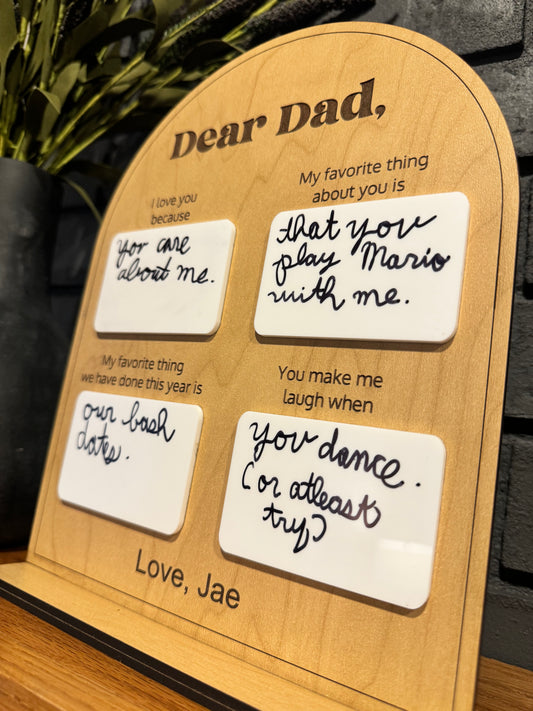 Dear Dad,
I love you
because
your care
about me.
My favorite thing
about you is
that you
play Mario
with me.
My favorite thing
we have done this year is
our bash
dates.
You make me
laugh when
you dance.
(or atleast
try)
Love, Jae